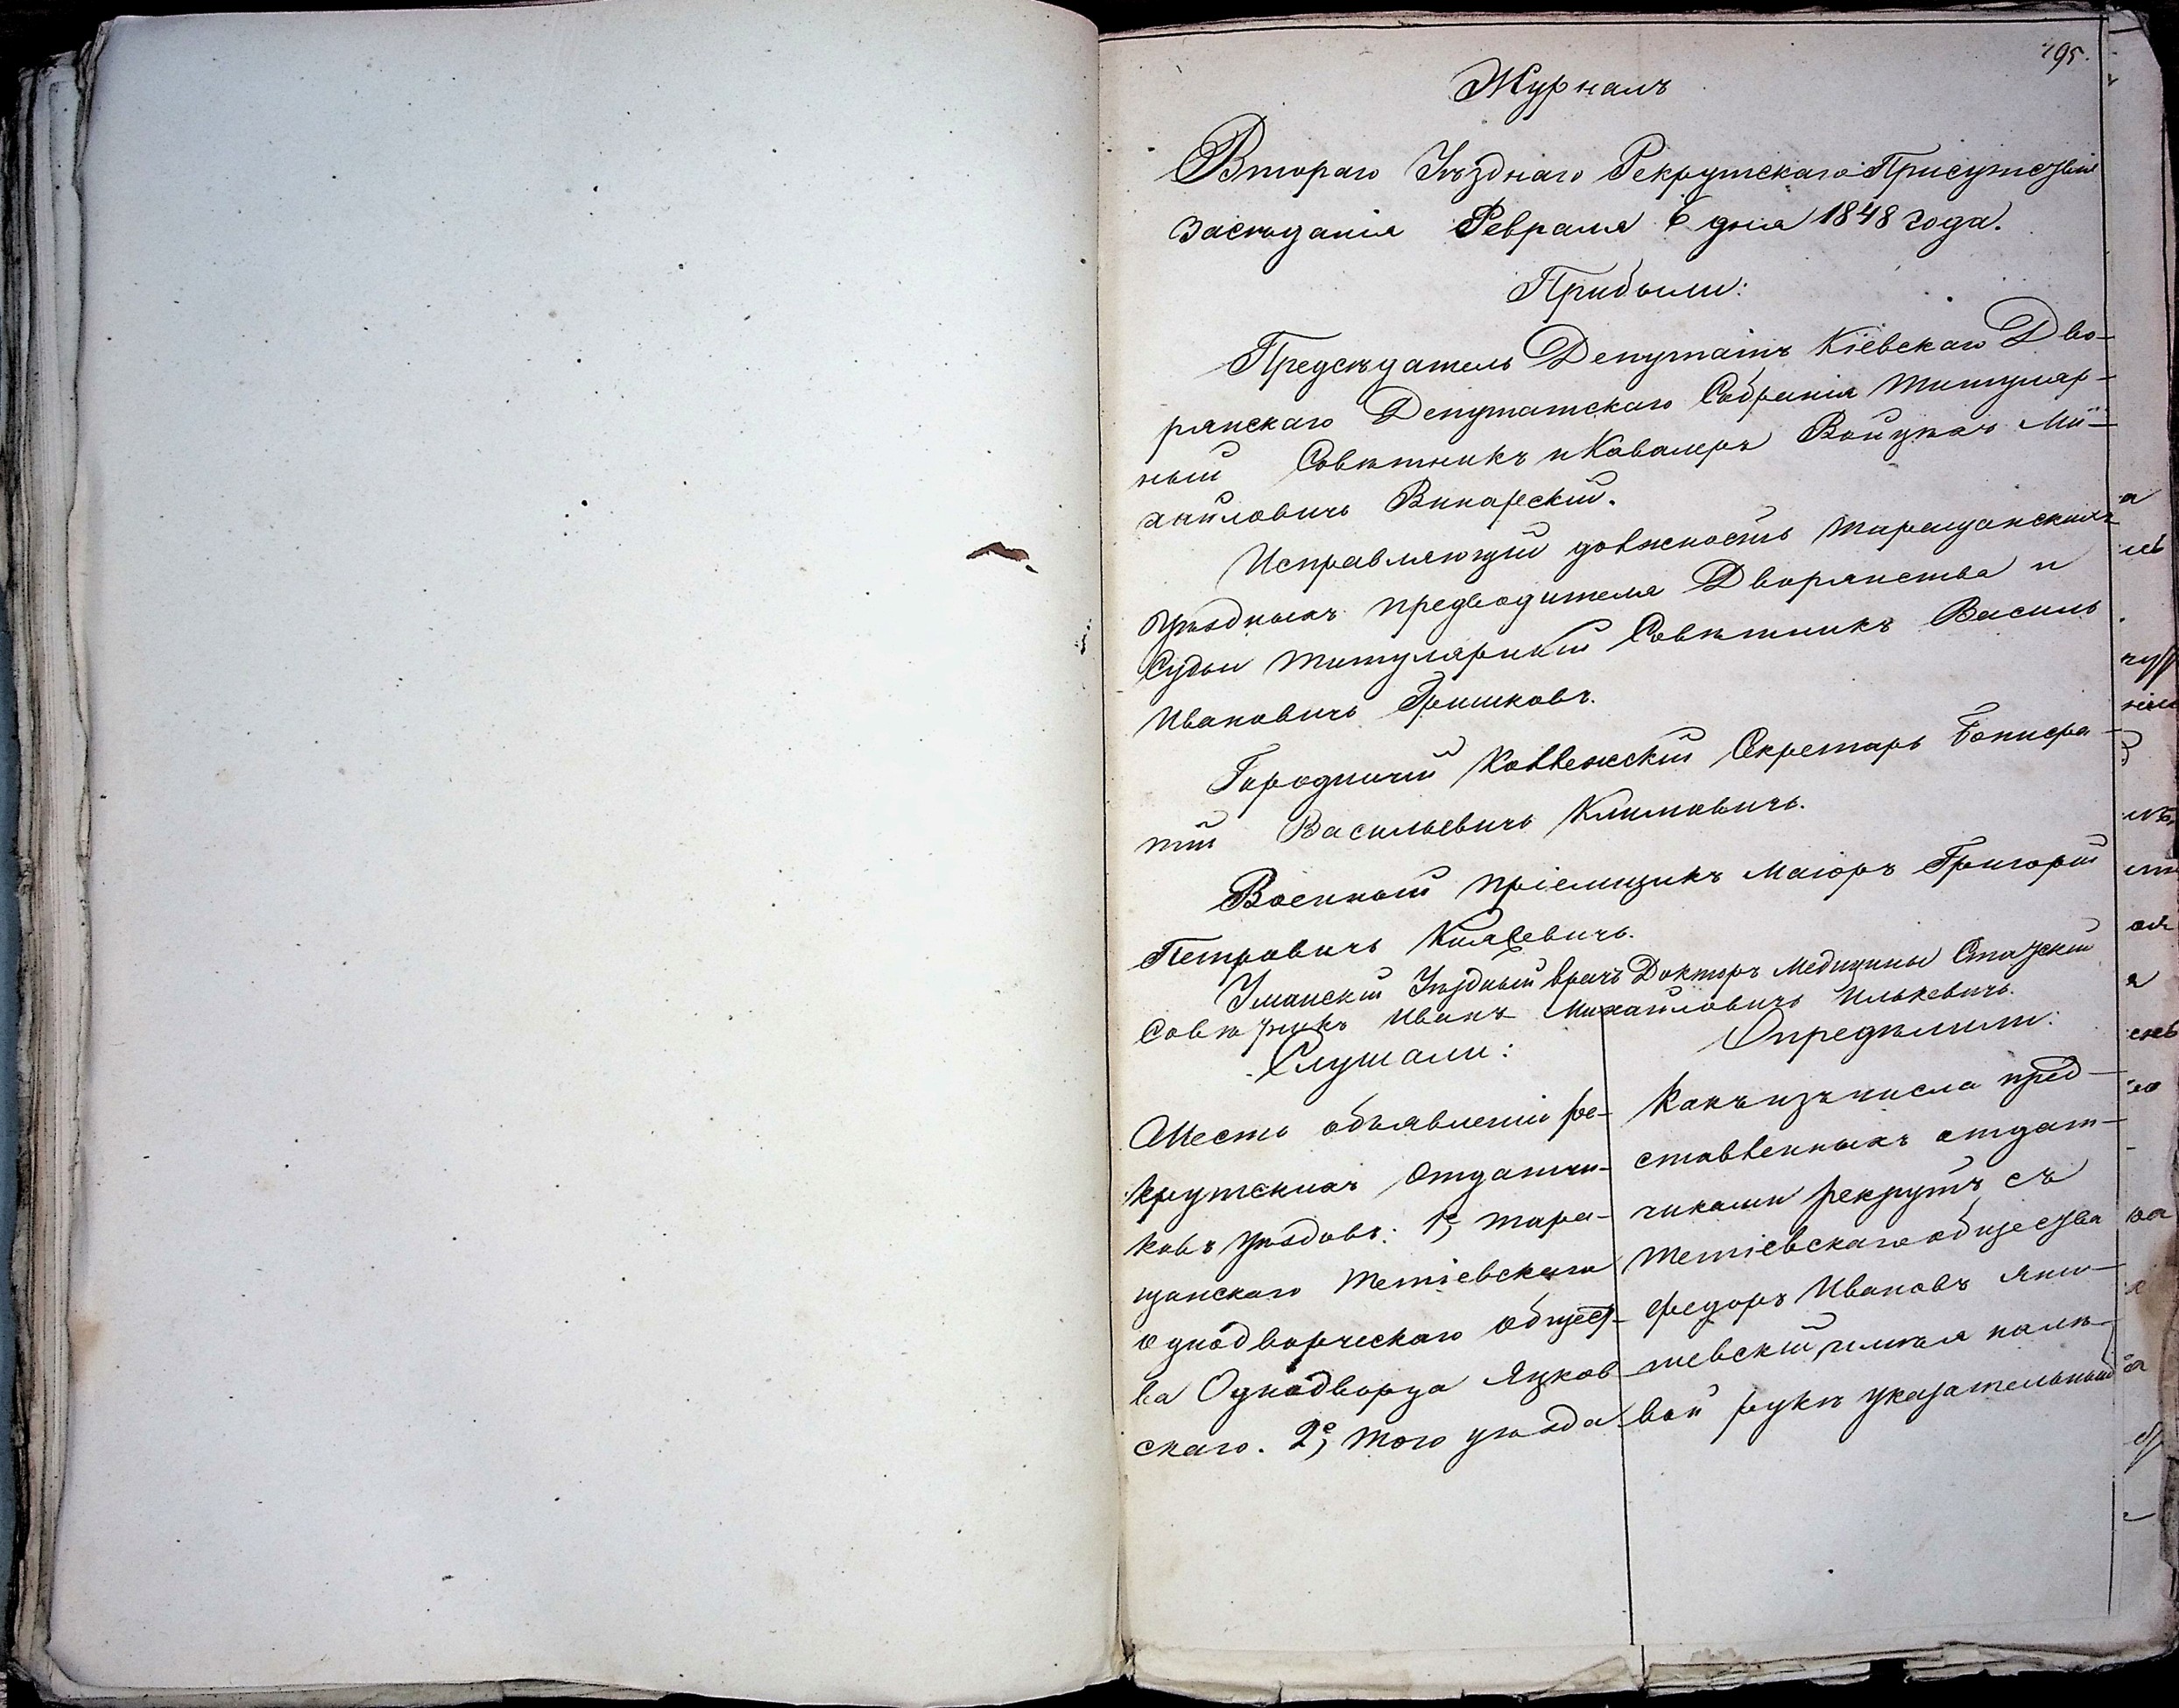 195.
Журналъ
Втораго Уѣзднаго Рекрутскаго Присутствія
Засѣданія Февраля 6 дня 1848 года.
Прибыли:
Предсѣдатель Депутатъ Кіевскаго Дво-
рянскаго Депутатскаго Собранія Титуляр-
ный Совѣтникъ и Кавалеръ Войцѣхъ Ми-
хайловичъ Винарскій.
Исправляющій должность Таращанскихъ
Уѣздныхъ предводителя Дворянства и
Судьи Титулярный Совѣтникъ Василь
Ивановичъ Гришковъ.
Городничій Коллежскій Секретарь Бонифа-
тій Васильевичъ Климовичъ.
Военный пріемщикъ Маіоръ Григорій
Петровичъ
Уманскій Уѣздный врачъ Докторъ Медицины Статскій
Совѣтникъ Иванъ Михайловичъ Илькевичъ.
Слушали:
Шесть объявленій ре-
крутскихъ отдатчи-
ковъ уѣздовъ: 1е, Тара-
щанскаго Тетіевскаго
однодворческаго общест-
ва Однодворца Яцков
скаго. 2е, того уѣзда
Опредѣлили:
Какъ изъ числа пред-
ставленныхъ отдат-
чиками рекрутъ съ
Тетіевскаго общества
Федоръ Ивановъ
имѣя на лѣ-
вой рукѣ указательный